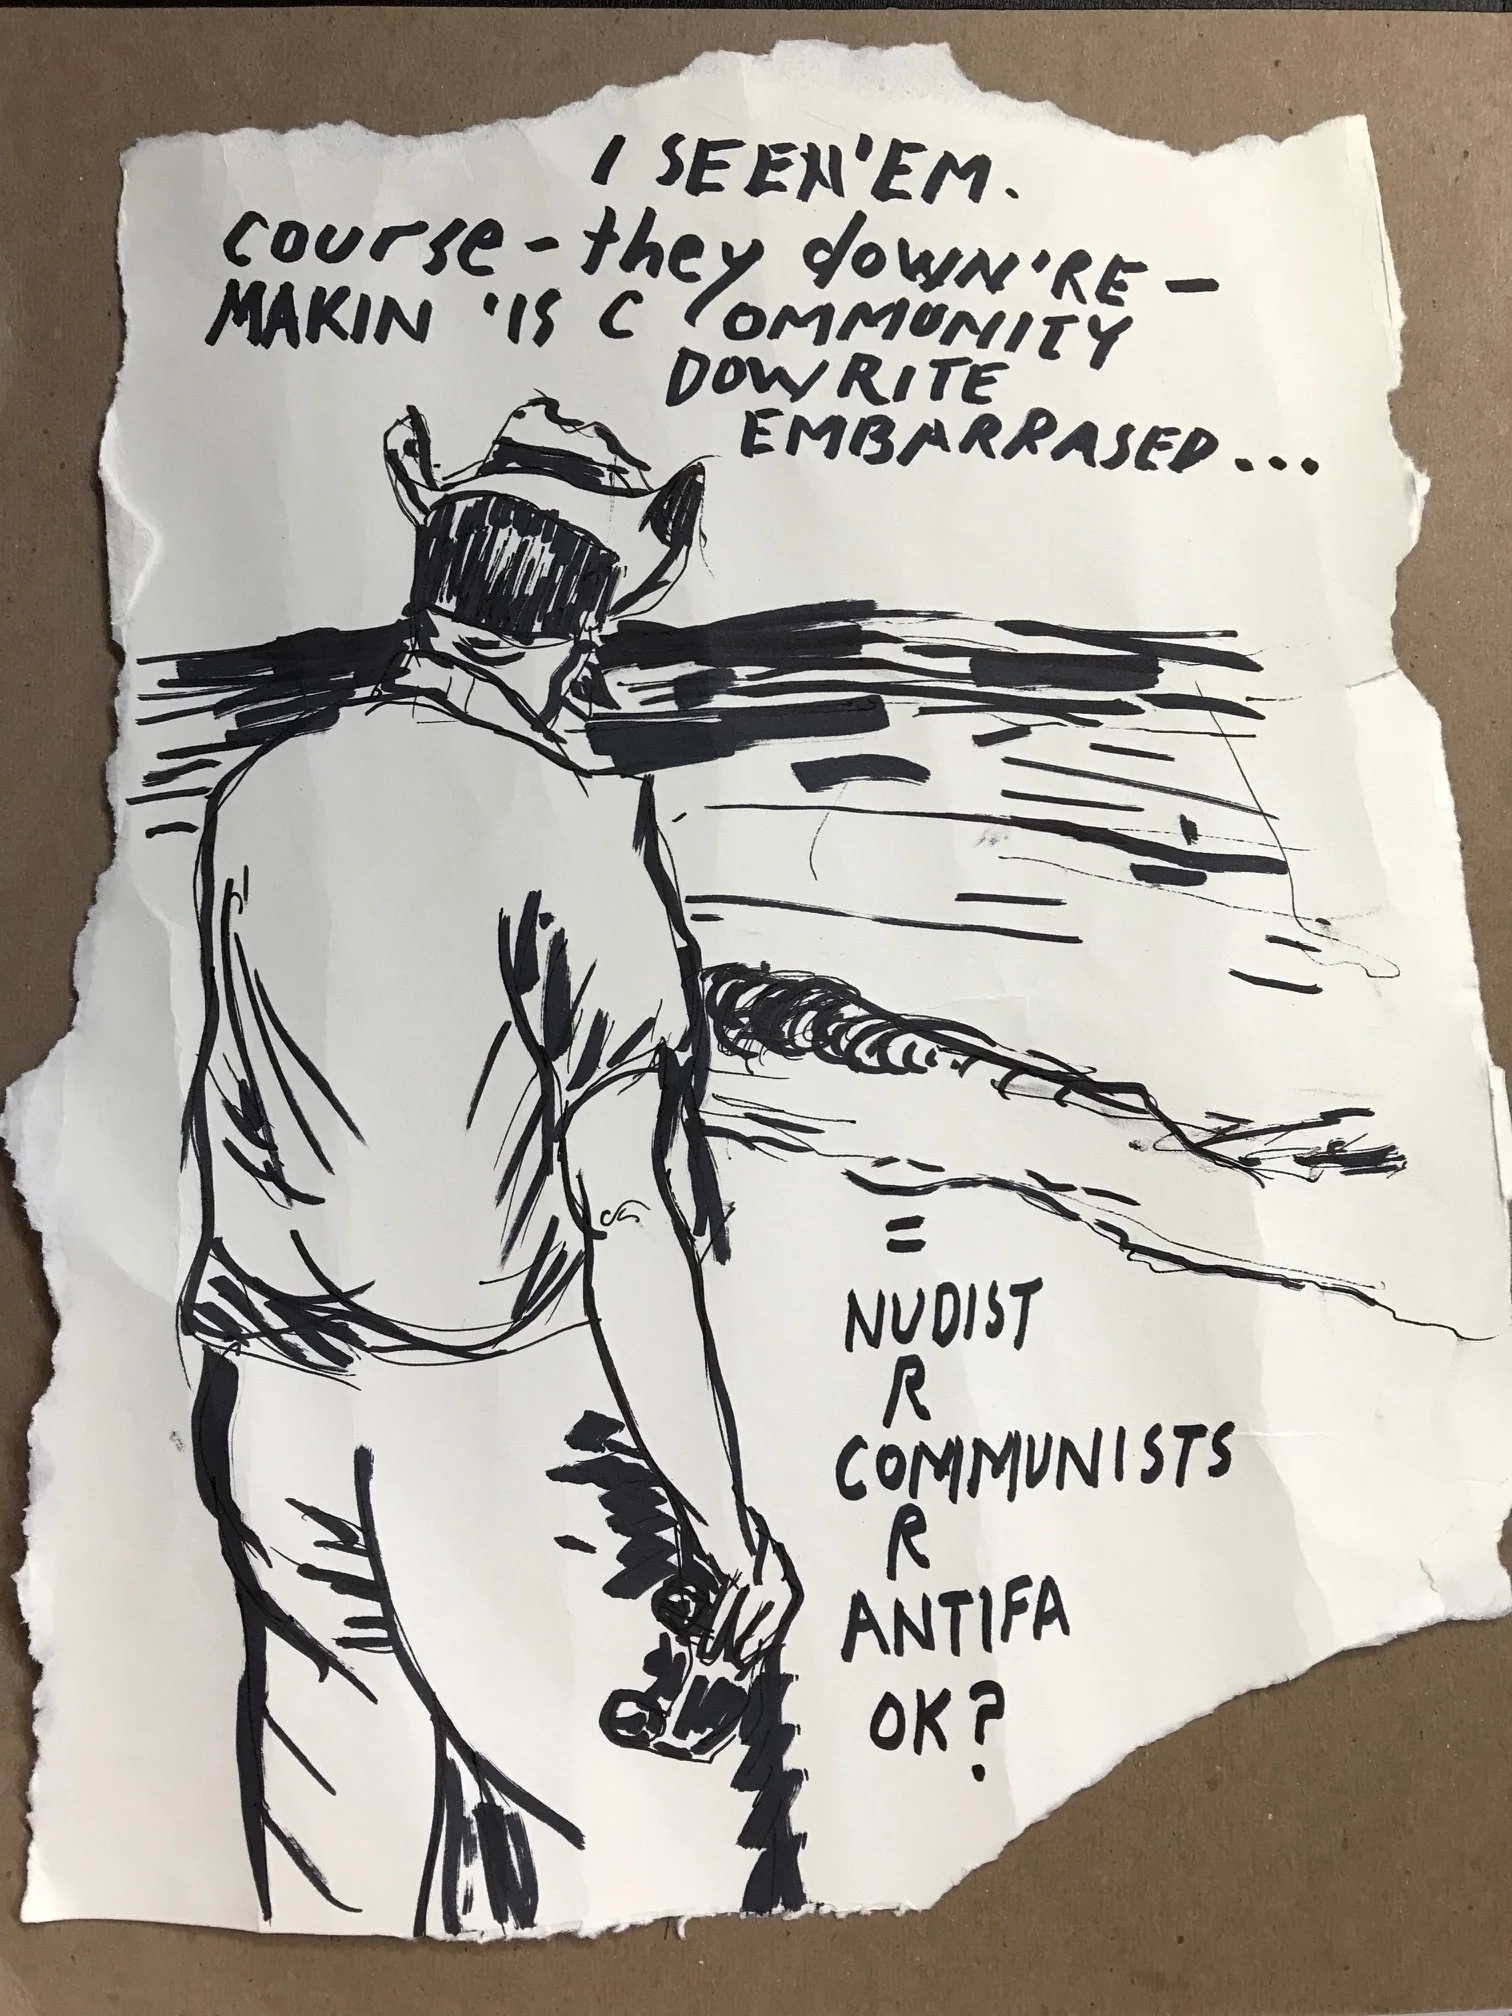 I SEEN'EM.
course - they down'RE -
MAKIN 'IS C OMMUNITY
DOWRITE
EMBARRASED...
=
NUDIST
R
COMMUNISTS
R
ANTIFA
OK?